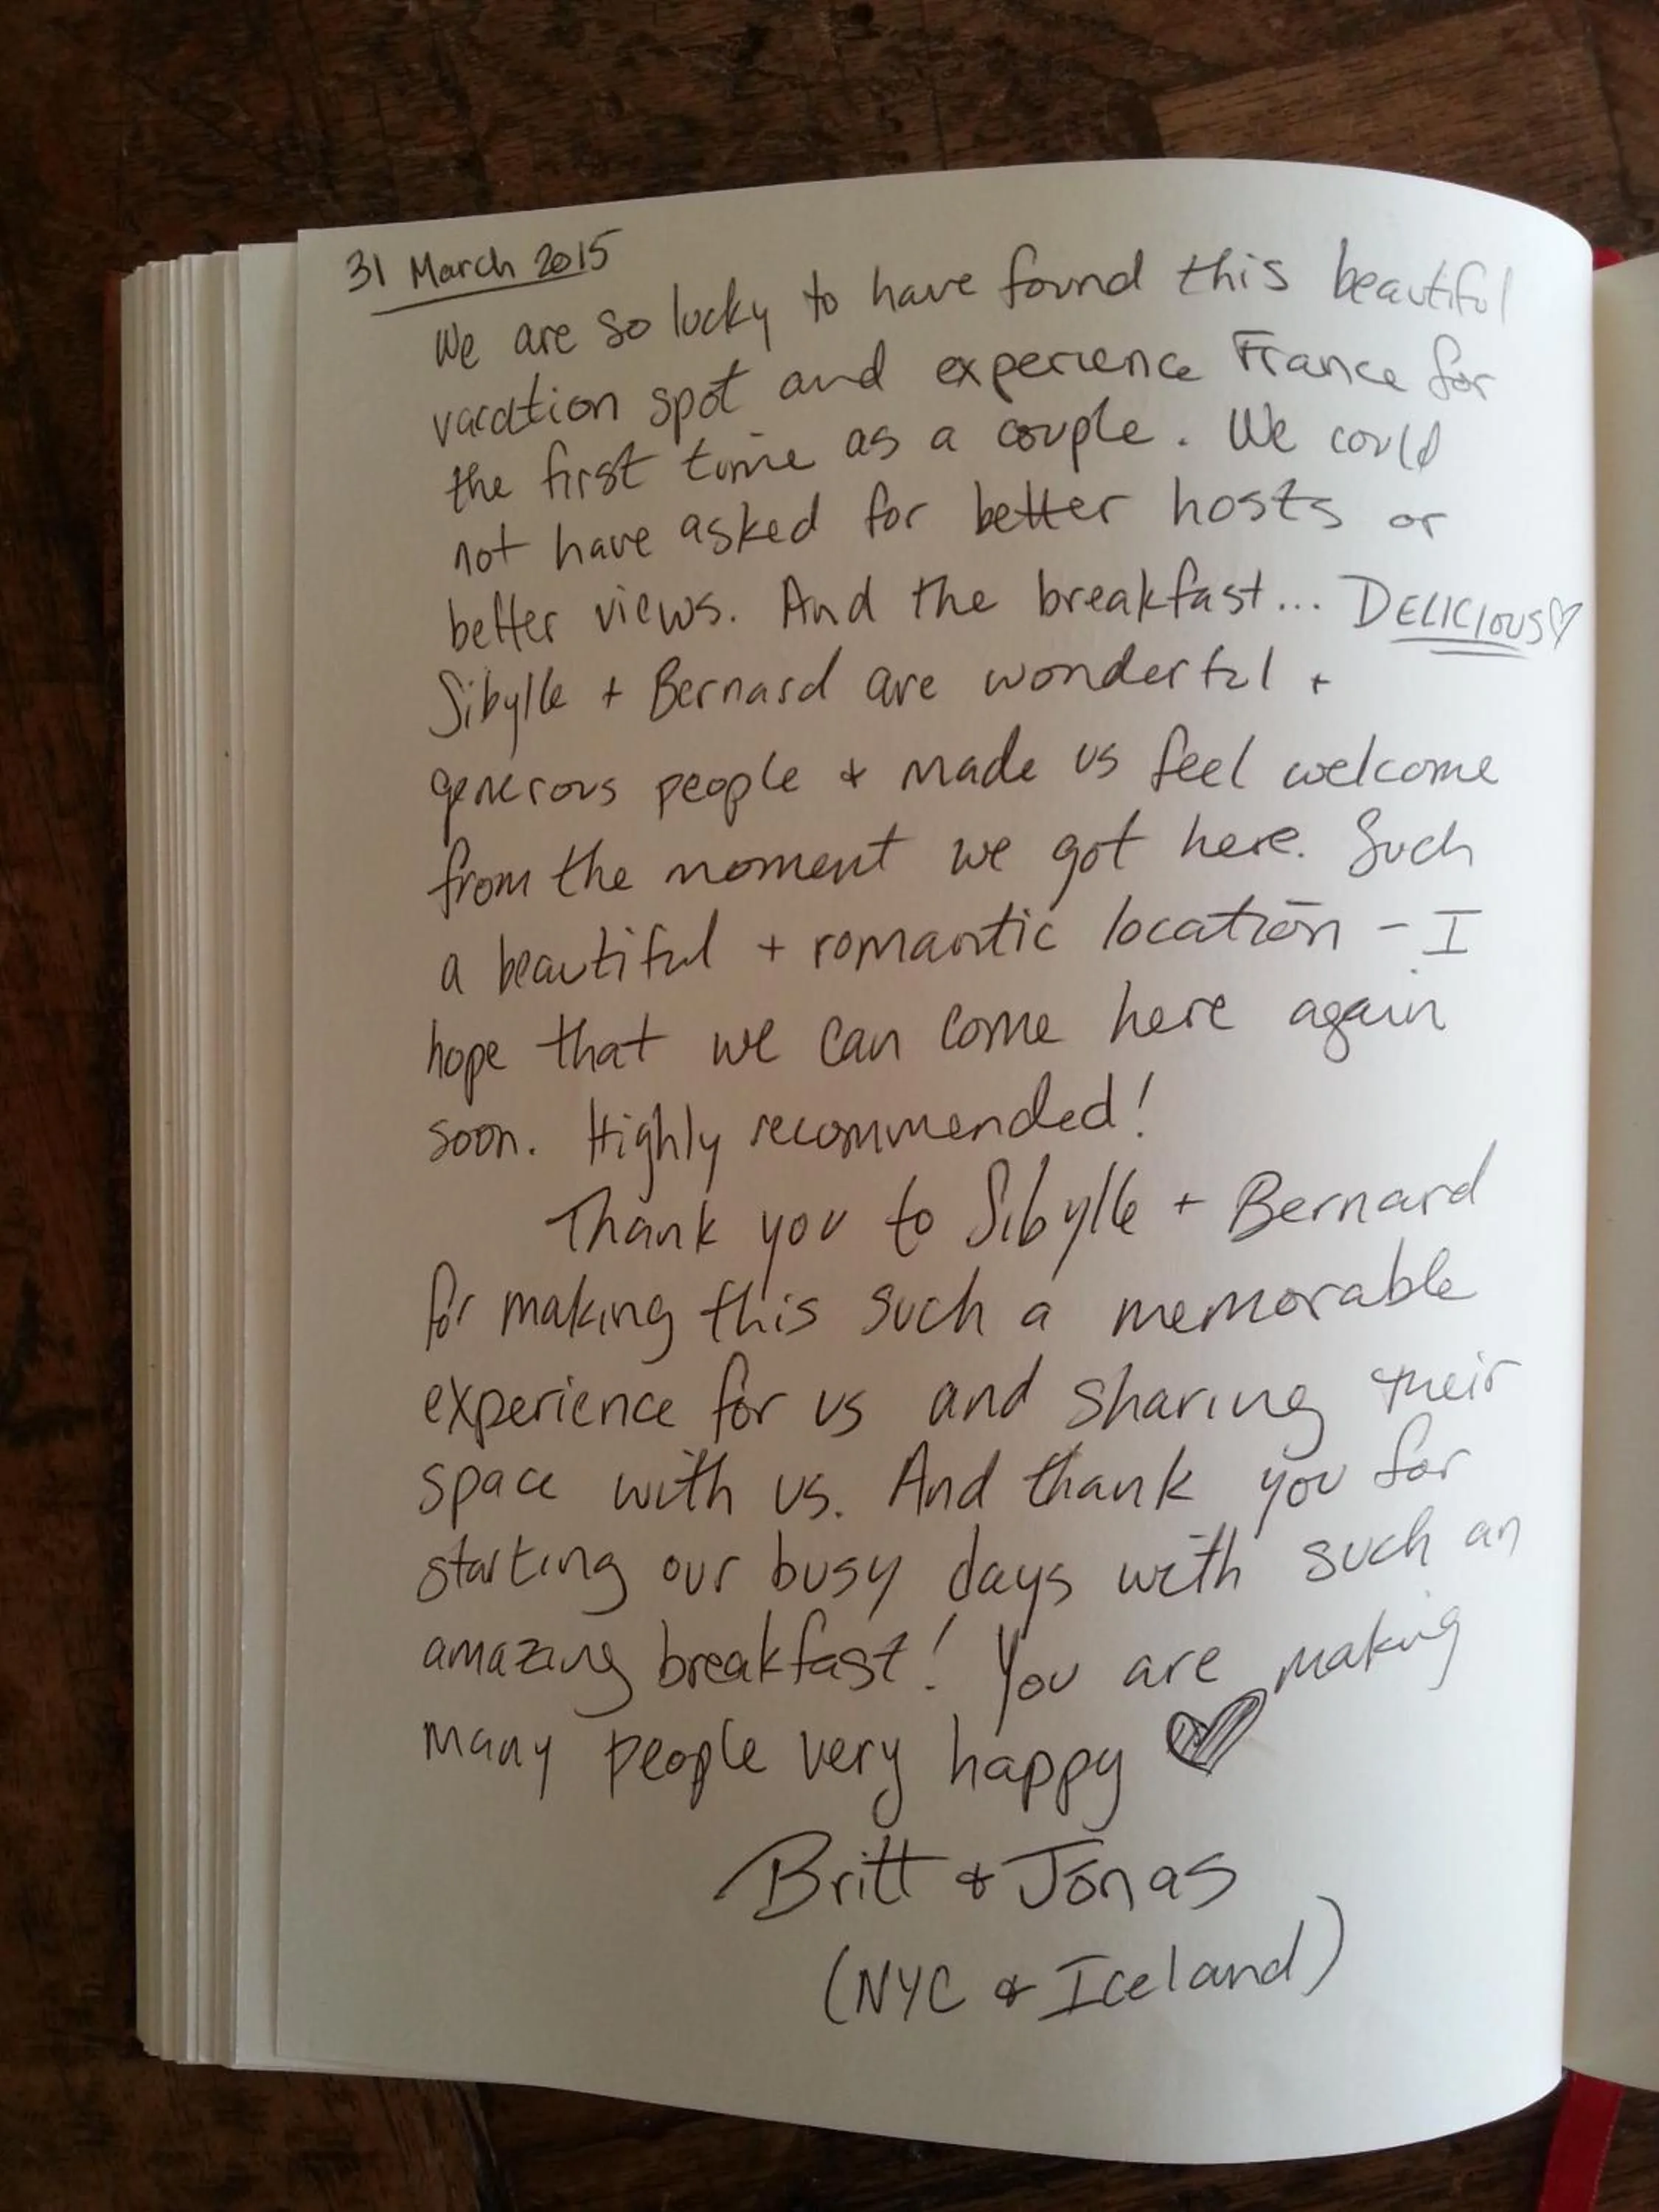 31 March 2015
We are so lucky to have found this beautiful
vacation spot and experience France for
the first time as a couple. We could
not have asked for better hosts or
better views. And the breakfast... DELICIOUS♡
Sibylle + Bernard are wonderful +
generous people & made us feel welcome
from the moment we got here. Such
a beautiful + romantic location - I
hope that we can come here again
soon. Highly recommended!
Thank you to Sibylle + Bernard
for making this such a memorable
experience for us and sharing their
space with us. And thank you for
starting our busy days with such an
amazing breakfast! You are making
many people very happy ♥
Britt & Jónas
(NYC & Iceland)